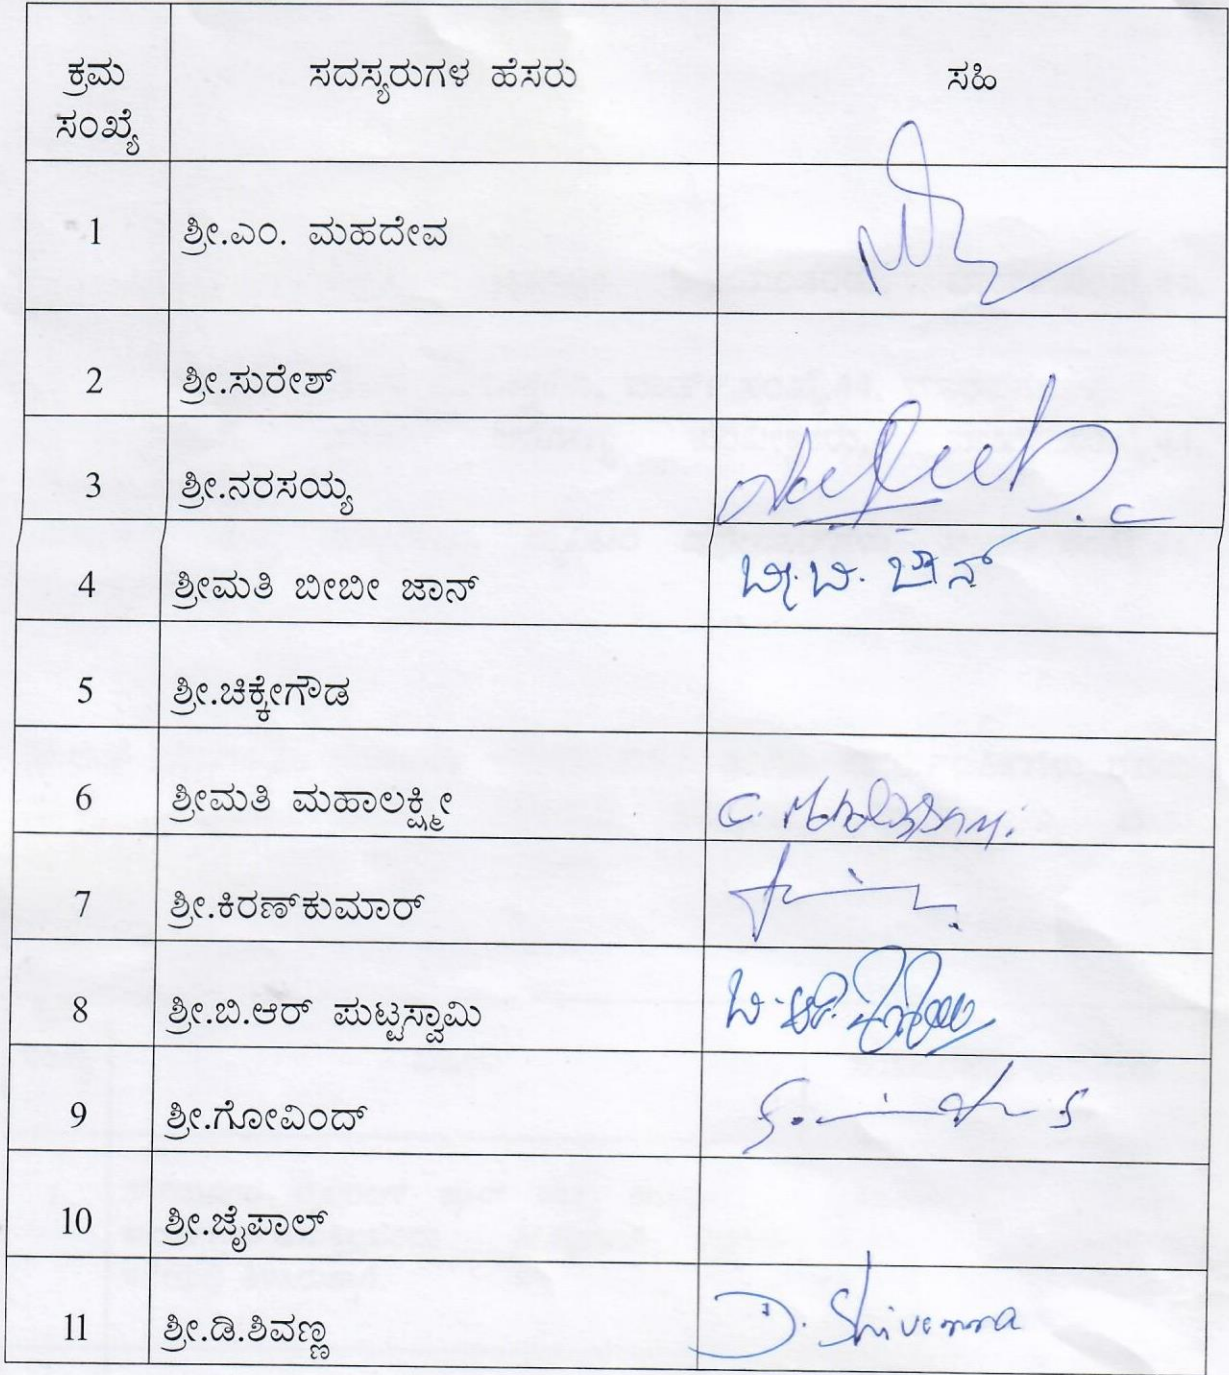 ಕ್ರಮ ಸಂಖ್ಯೆ ಸದಸ್ಯರುಗಳ ಹೆಸರು ಸಹಿ
1 ಶ್ರೀ.ಎಂ. ಮಹದೇವ
2 ಶ್ರೀ.ಸುರೇಶ್
3 ಶ್ರೀ.ನರಸಯ್ಯ
4 ಶ್ರೀಮತಿ ಬೀಬೀ ಜಾನ್ ಬೀ.ಬಿ. ಜಾನ್
5 ಶ್ರೀ.ಚಿಕ್ಕೇಗೌಡ
6 ಶ್ರೀಮತಿ ಮಹಾಲಕ್ಷ್ಮೀ
7 ಶ್ರೀ.ಕಿರಣ್‌ಕುಮಾರ್
8 ಶ್ರೀ.ಬಿ.ಆರ್ ಪುಟ್ಟಸ್ವಾಮಿ
9 ಶ್ರೀ.ಗೋವಿಂದ್
10 ಶ್ರೀ.ಜೈಪಾಲ್
11 ಶ್ರೀ.ಡಿ.ಶಿವಣ್ಣ D. Shivanna